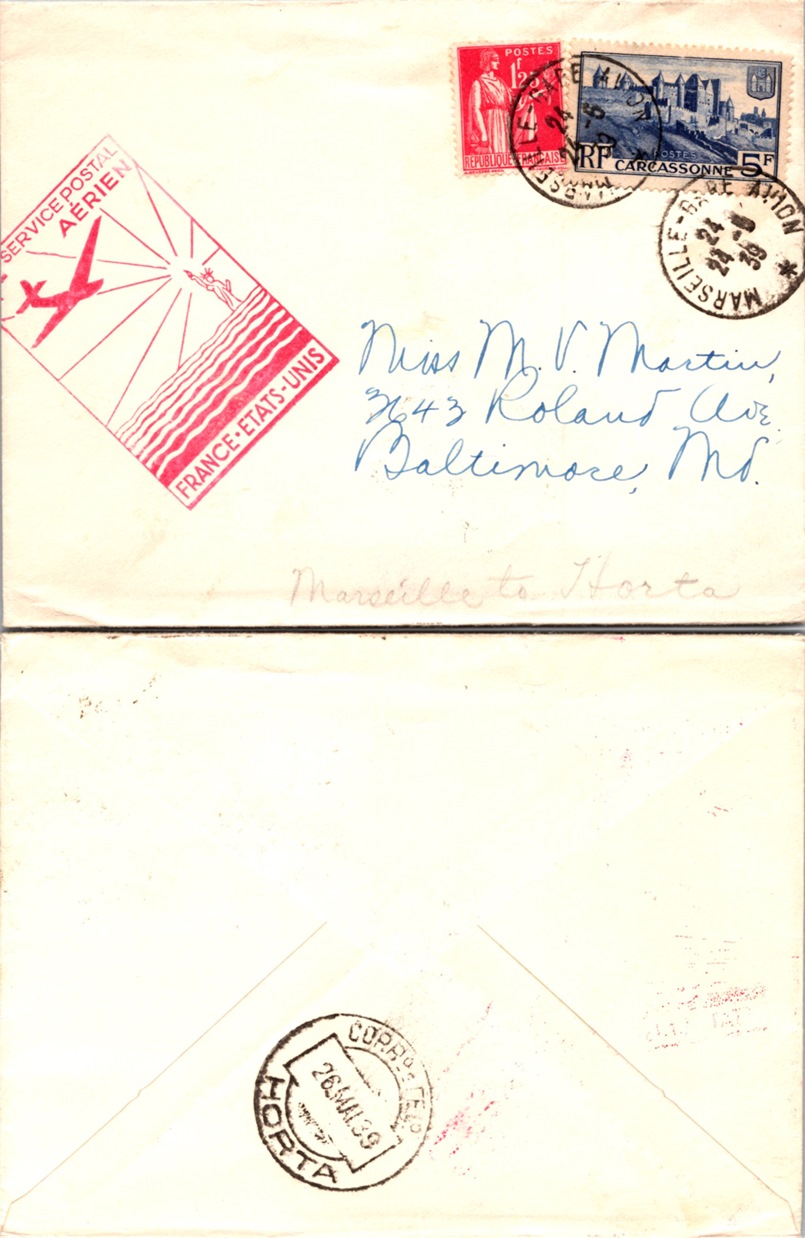 POSTES
1F25
REPUBLIQUE FRANÇAISE
RF
POSTES
CARCASSONNE 5F
MARSEILLE-GARE AVION
24
24 -5
39
MARSEILLE-GARE AVION *
24
24 -5
39
SERVICE POSTAL
AÉRIEN
FRANCE-ETATS-UNIS
Miss M. V. Martin,
3643 Roland Ave.
Baltimore, Md.
Marseille to Horta
26 MAI 39
HORTA